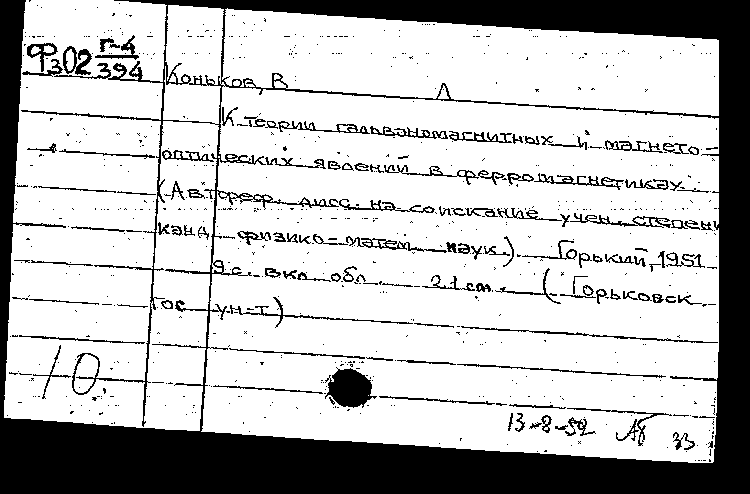 Фз02 Г-4
394
Коньков, В Л
К теории гальваномагнитных и магнето=
оптических явлений в ферромагнетиках.
(Автореф. дисс. на соискание учен. степени
канд физико=матем. наук.) Горький, 1951
9 с. вкл обл. 21 см. (Горьковск
Гос ун-т)
10.
13-8-52 Аб 33